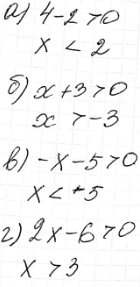 а) 4-2>0
x < 2
б) x+3>0
x > -3
в) -x-5>0
x < -5
г) 2x-6>0
x > 3